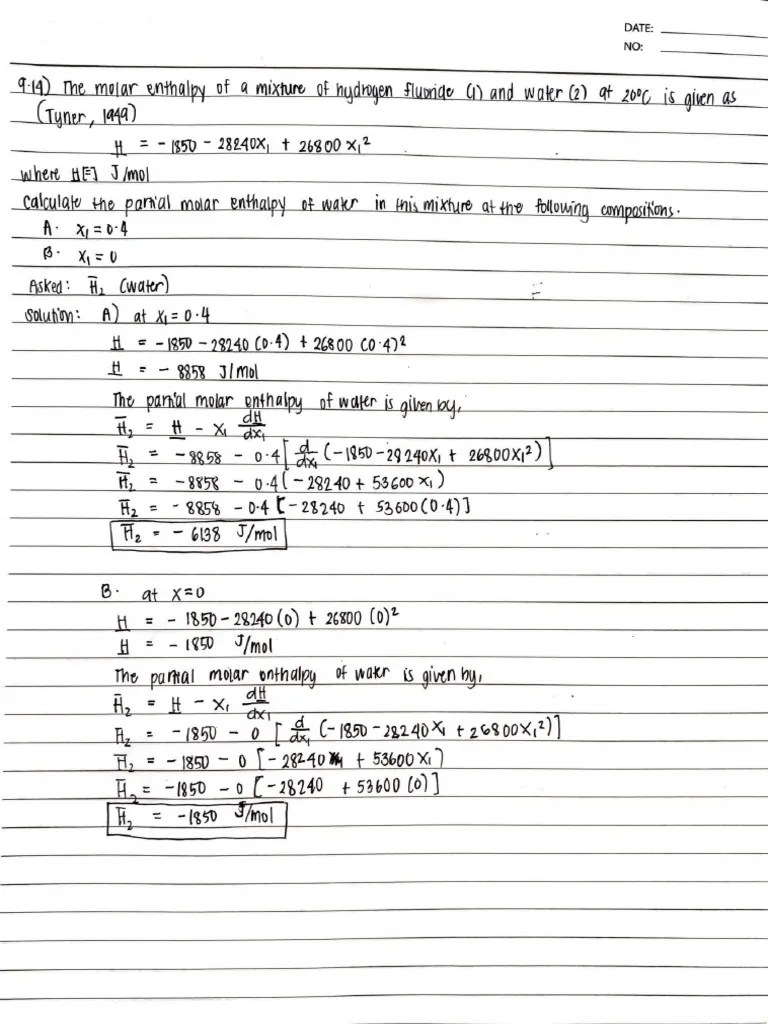 DATE:
NO:
9.14) The molar enthalpy of a mixture of hydrogen fluoride (1) and water (2) at 20°C is given as
(Tyner, 1949)
H = -1850 - 28240x₁ + 26800 x₁²
where H[=] J/mol
Calculate the partial molar enthalpy of water in this mixture at the following compositions.
A. x₁ = 0.4
B. x₁ = 0
Asked: H̄₂ (water)
Solution: A) at x₁ = 0.4
H = -1850 - 28240 (0.4) + 26800 (0.4)²
H = - 8858 J/mol
The partial molar enthalpy of water is given by,
H̄₂ = H - x₁ dH/dx₁
H̄₂ = -8858 - 0.4 [d/dx₁ (-1850 - 28240x₁ + 26800x₁²)]
H̄₂ = -8858 - 0.4 (-28240 + 53600 x₁)
H̄₂ = -8858 - 0.4 [-28240 + 53600 (0.4)]
H̄₂ = - 6138 J/mol
B. at x=0
H = - 1850 - 28240 (0) + 26800 (0)²
H = - 1850 J/mol
The partial molar enthalpy of water is given by,
H̄₂ = H - x₁ dH/dx₁
H̄₂ = -1850 - 0 [d/dx₁ (-1850 - 28240x₁ + 26800x₁²)]
H̄₂ = -1850 - 0 [-28240 + 53600 x₁)
H̄₂ = -1850 - 0 [-28240 + 53600 (0)]
H̄₂ = -1850 J/mol